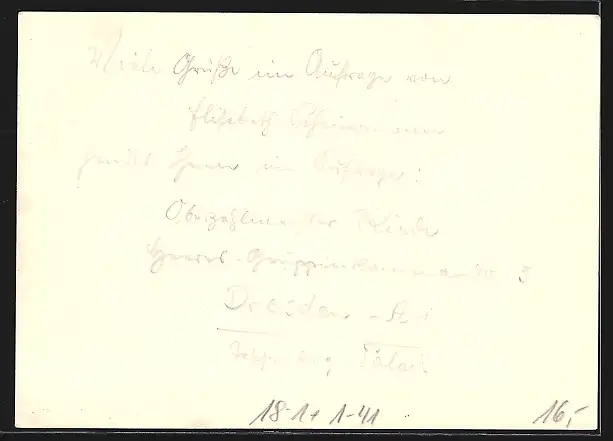 Viele Grüße im Auftrage von
Elisabeth
sendet Ihnen im Auftrage:
Oberzahlmeister
Heeres-Gruppenkommando 3
Dresden - A.
18-1+ 1-41
16,-